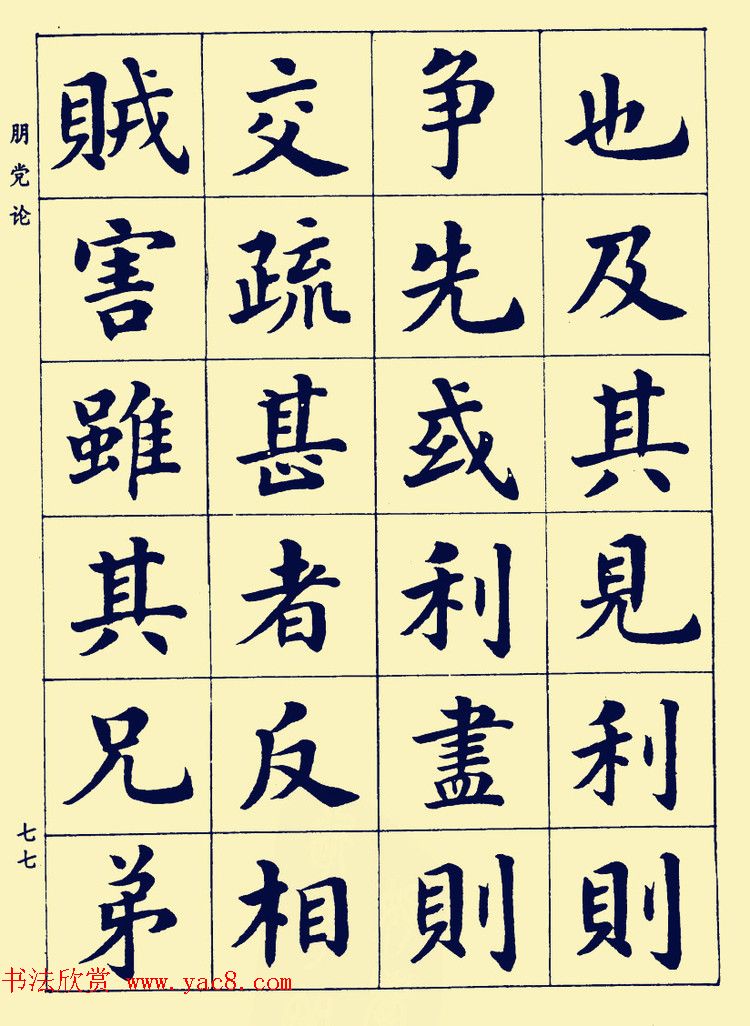 也及其見利則
争先或利盡則
交疏甚者反相
賊害雖其兄弟
朋党论
七七
书法欣赏 www.yac8.com